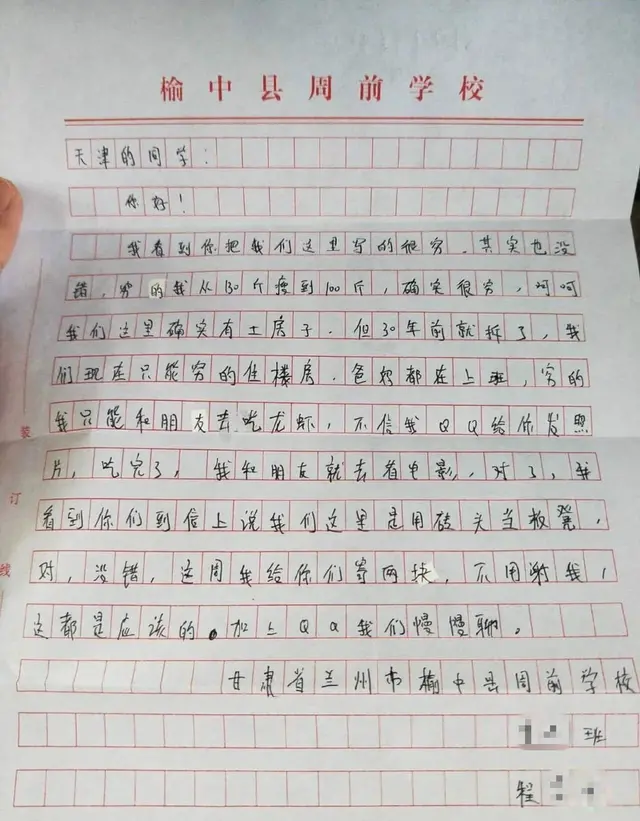 榆中县周前学校
天津的同学：
你好！
我看到你把我们这里写的很穷，其实也没
错，穷的我从130斤瘦到100斤，确实很穷，呵呵
我们这里确实有土房子，但30年前就拆了，我
们现在只能穷的住楼房，爸妈都在上班，穷的
我只能和朋友去吃龙虾，不信我QQ给你发照
片，吃完了，我和朋友就去看电影，对了，我
看到你们到信上说我们这里是用砖头当板凳，
对，没错，这周我给你们寄两块，不用谢我，
这都是应该的。加上QQ我们慢慢聊。
甘肃省兰州市榆中县周前学校
班
程
装
订
线